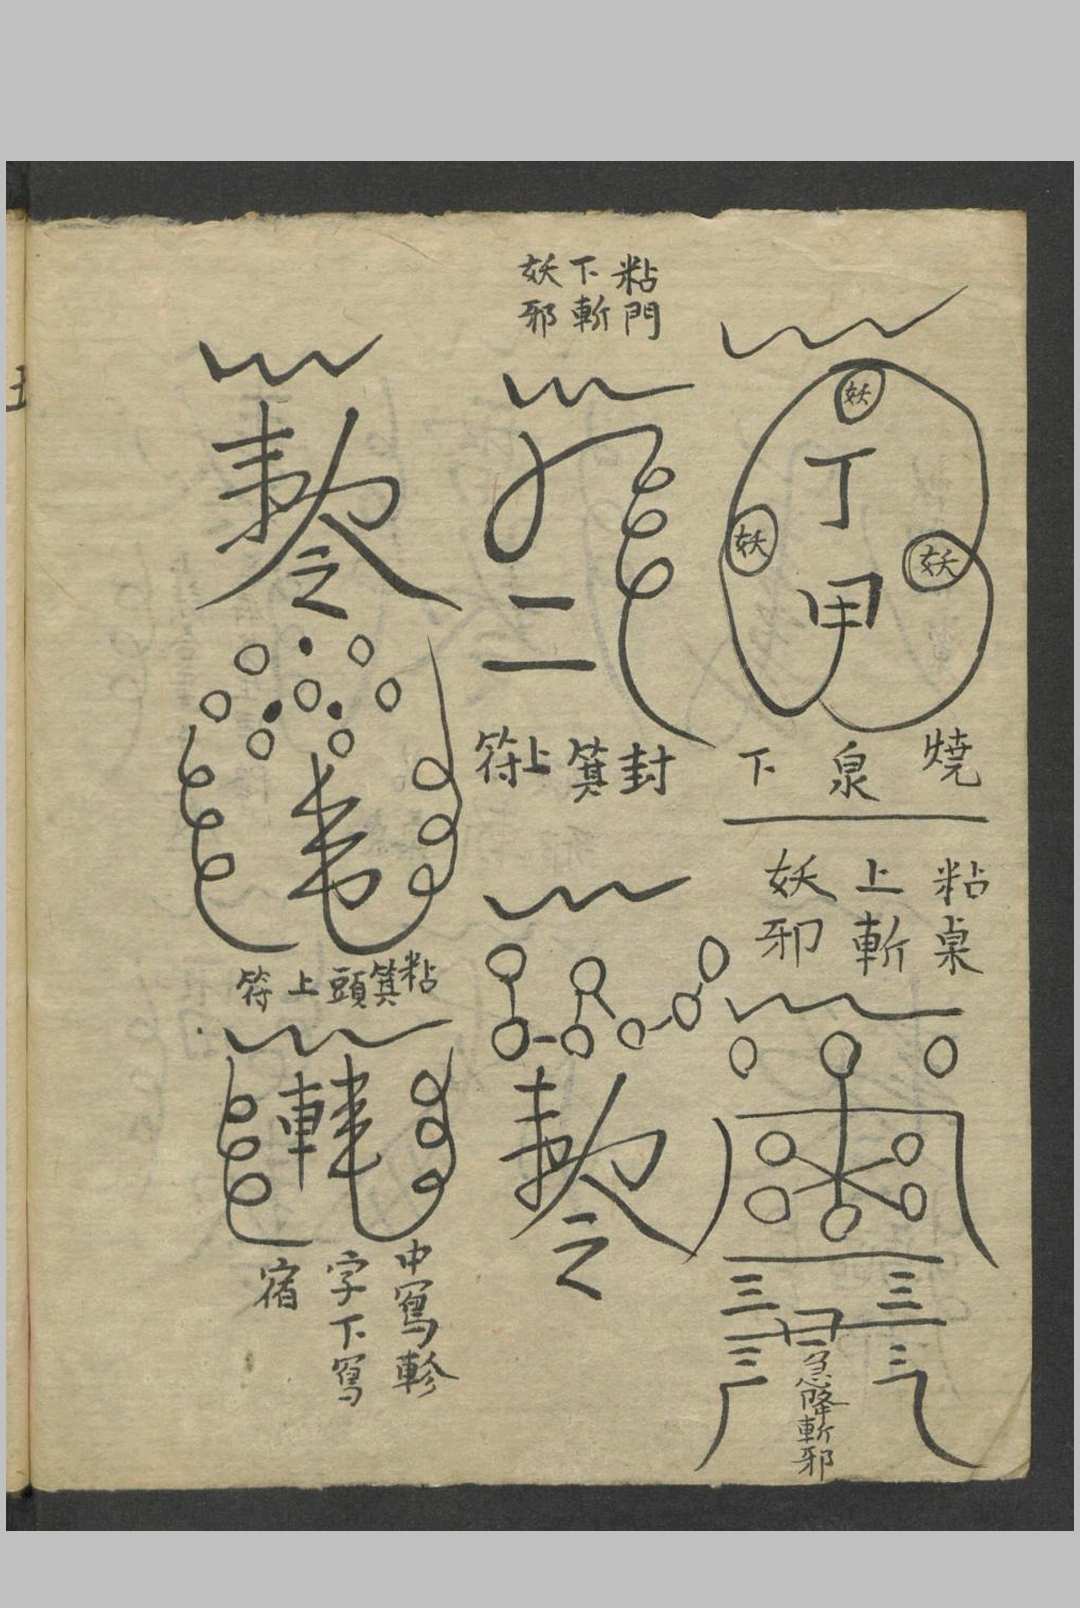 妖
丁
妖
妖
甲
燒泉下
粘桌
上斬
妖邪
三
三
急降斬邪
粘門
下斬
妖邪
二
封箕上符
敕令
之
敕令
之
粘箕頭上符
中寫軫
字下寫
宿